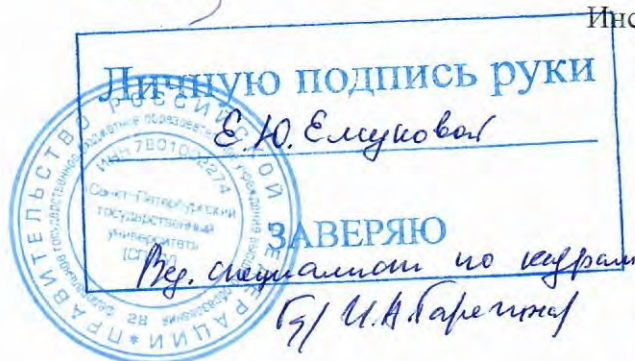 Инс
Личную подпись руки
Е.Ю. Елсуковой
ЗАВЕРЯЮ
Вед. специалист по кадрам
И.А.
ПРАВИТЕЛЬСТВО РОССИЙСКОЙ ФЕДЕРАЦИИ *
ИНН 7801002274
Санкт-Петербургский
государственный
университет
28